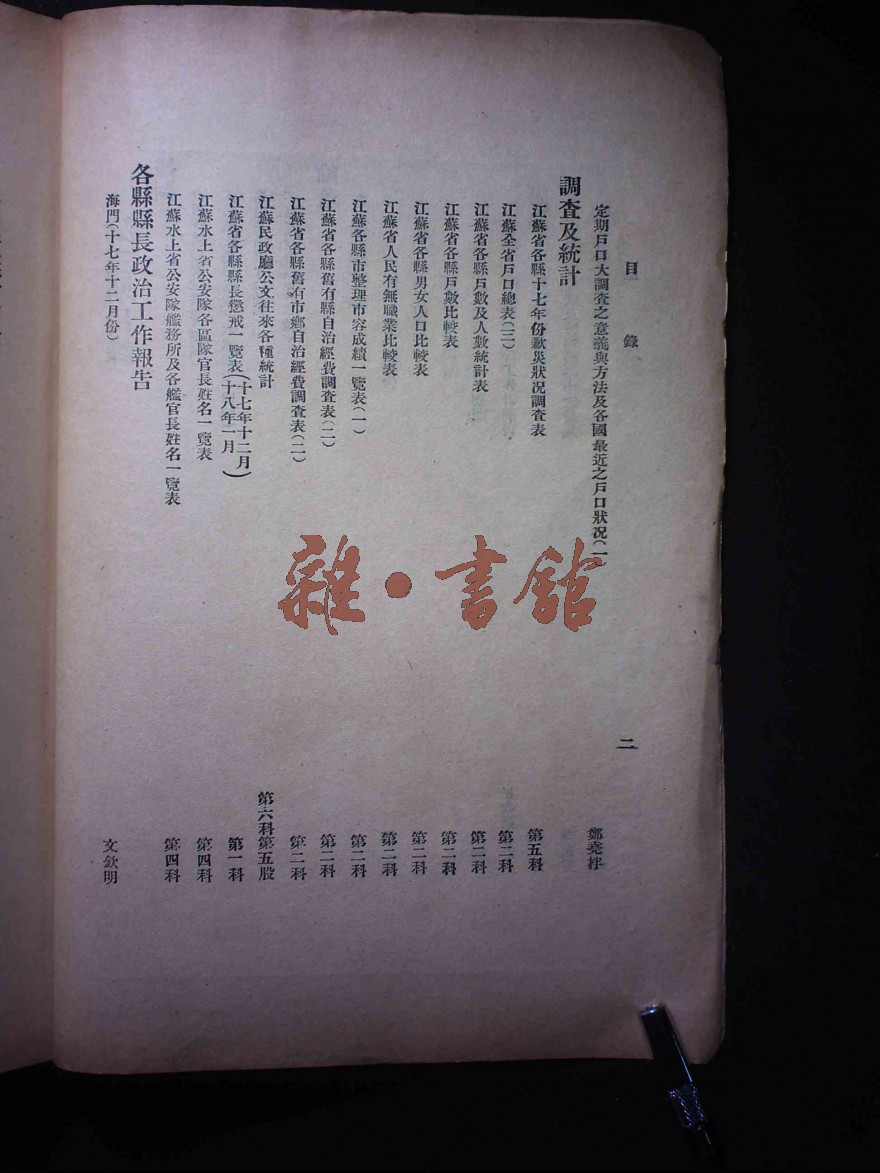 目錄
二
定期戶口大調查之意義與方法及各國最近之戶口狀况(一
鄭堯拌
調查及統計
江蘇省各縣十七年份歉災狀况調查表
第五科
江蘇全省戶口總表(三)
第二科
江蘇省各縣戶數及人數統計表
第二科
江蘇省各縣戶數比較表
第二科
江蘇省各縣男女人口比較表
第二科
江蘇省人民有無職業比較表
第二科
江蘇各縣市整理市容成績一覽表(一)
第二科
江蘇省各縣舊有縣自治經費調查表(二)
第二科
江蘇省各縣舊有市鄉自治經費調查表(二)
第二科
江蘇民政廳公文往來各種統計
第六科第五股
江蘇省各縣縣長懲戒一覽表(十七年十二月
十八年一月)
第一科
江蘇水上省公安隊各區隊官長姓名一覽表
第四科
江蘇水上省公安隊艦務所及各艦官長姓名一覽表
第四科
各縣縣長政治工作報告
海門(十七年十二月份)
文欽明
雜·書館